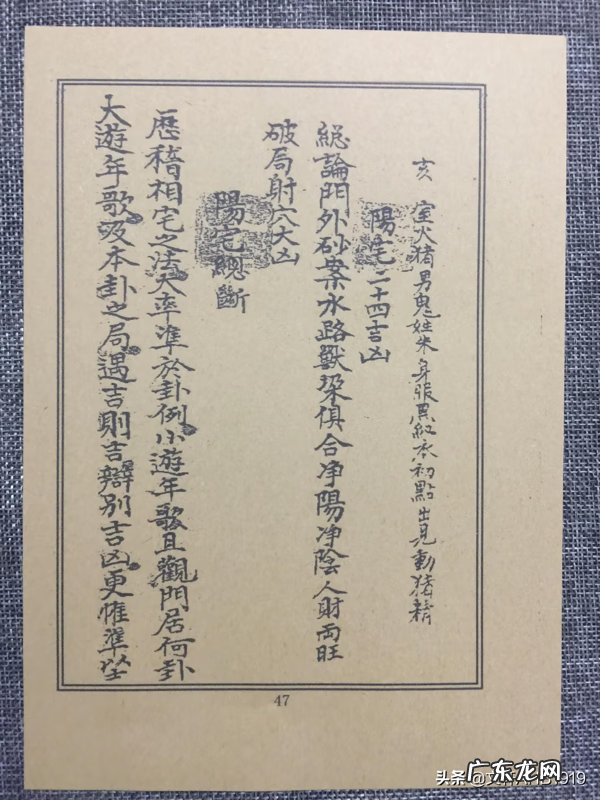 亥 室火猪男鬼姓朱身張黑紅衣初點出見動猪精
陽宅二十四吉凶
総論門外砂案水路獸染俱合净陽净陰人財兩旺
破局射穴大凶
陽宅總斷
歷稽相宅之法大率準於卦例小遊年歌且觀門居何卦
大遊年歌及本卦之局遇吉則吉辯別吉凶更惟準坐
47
头条
919
广东龙网